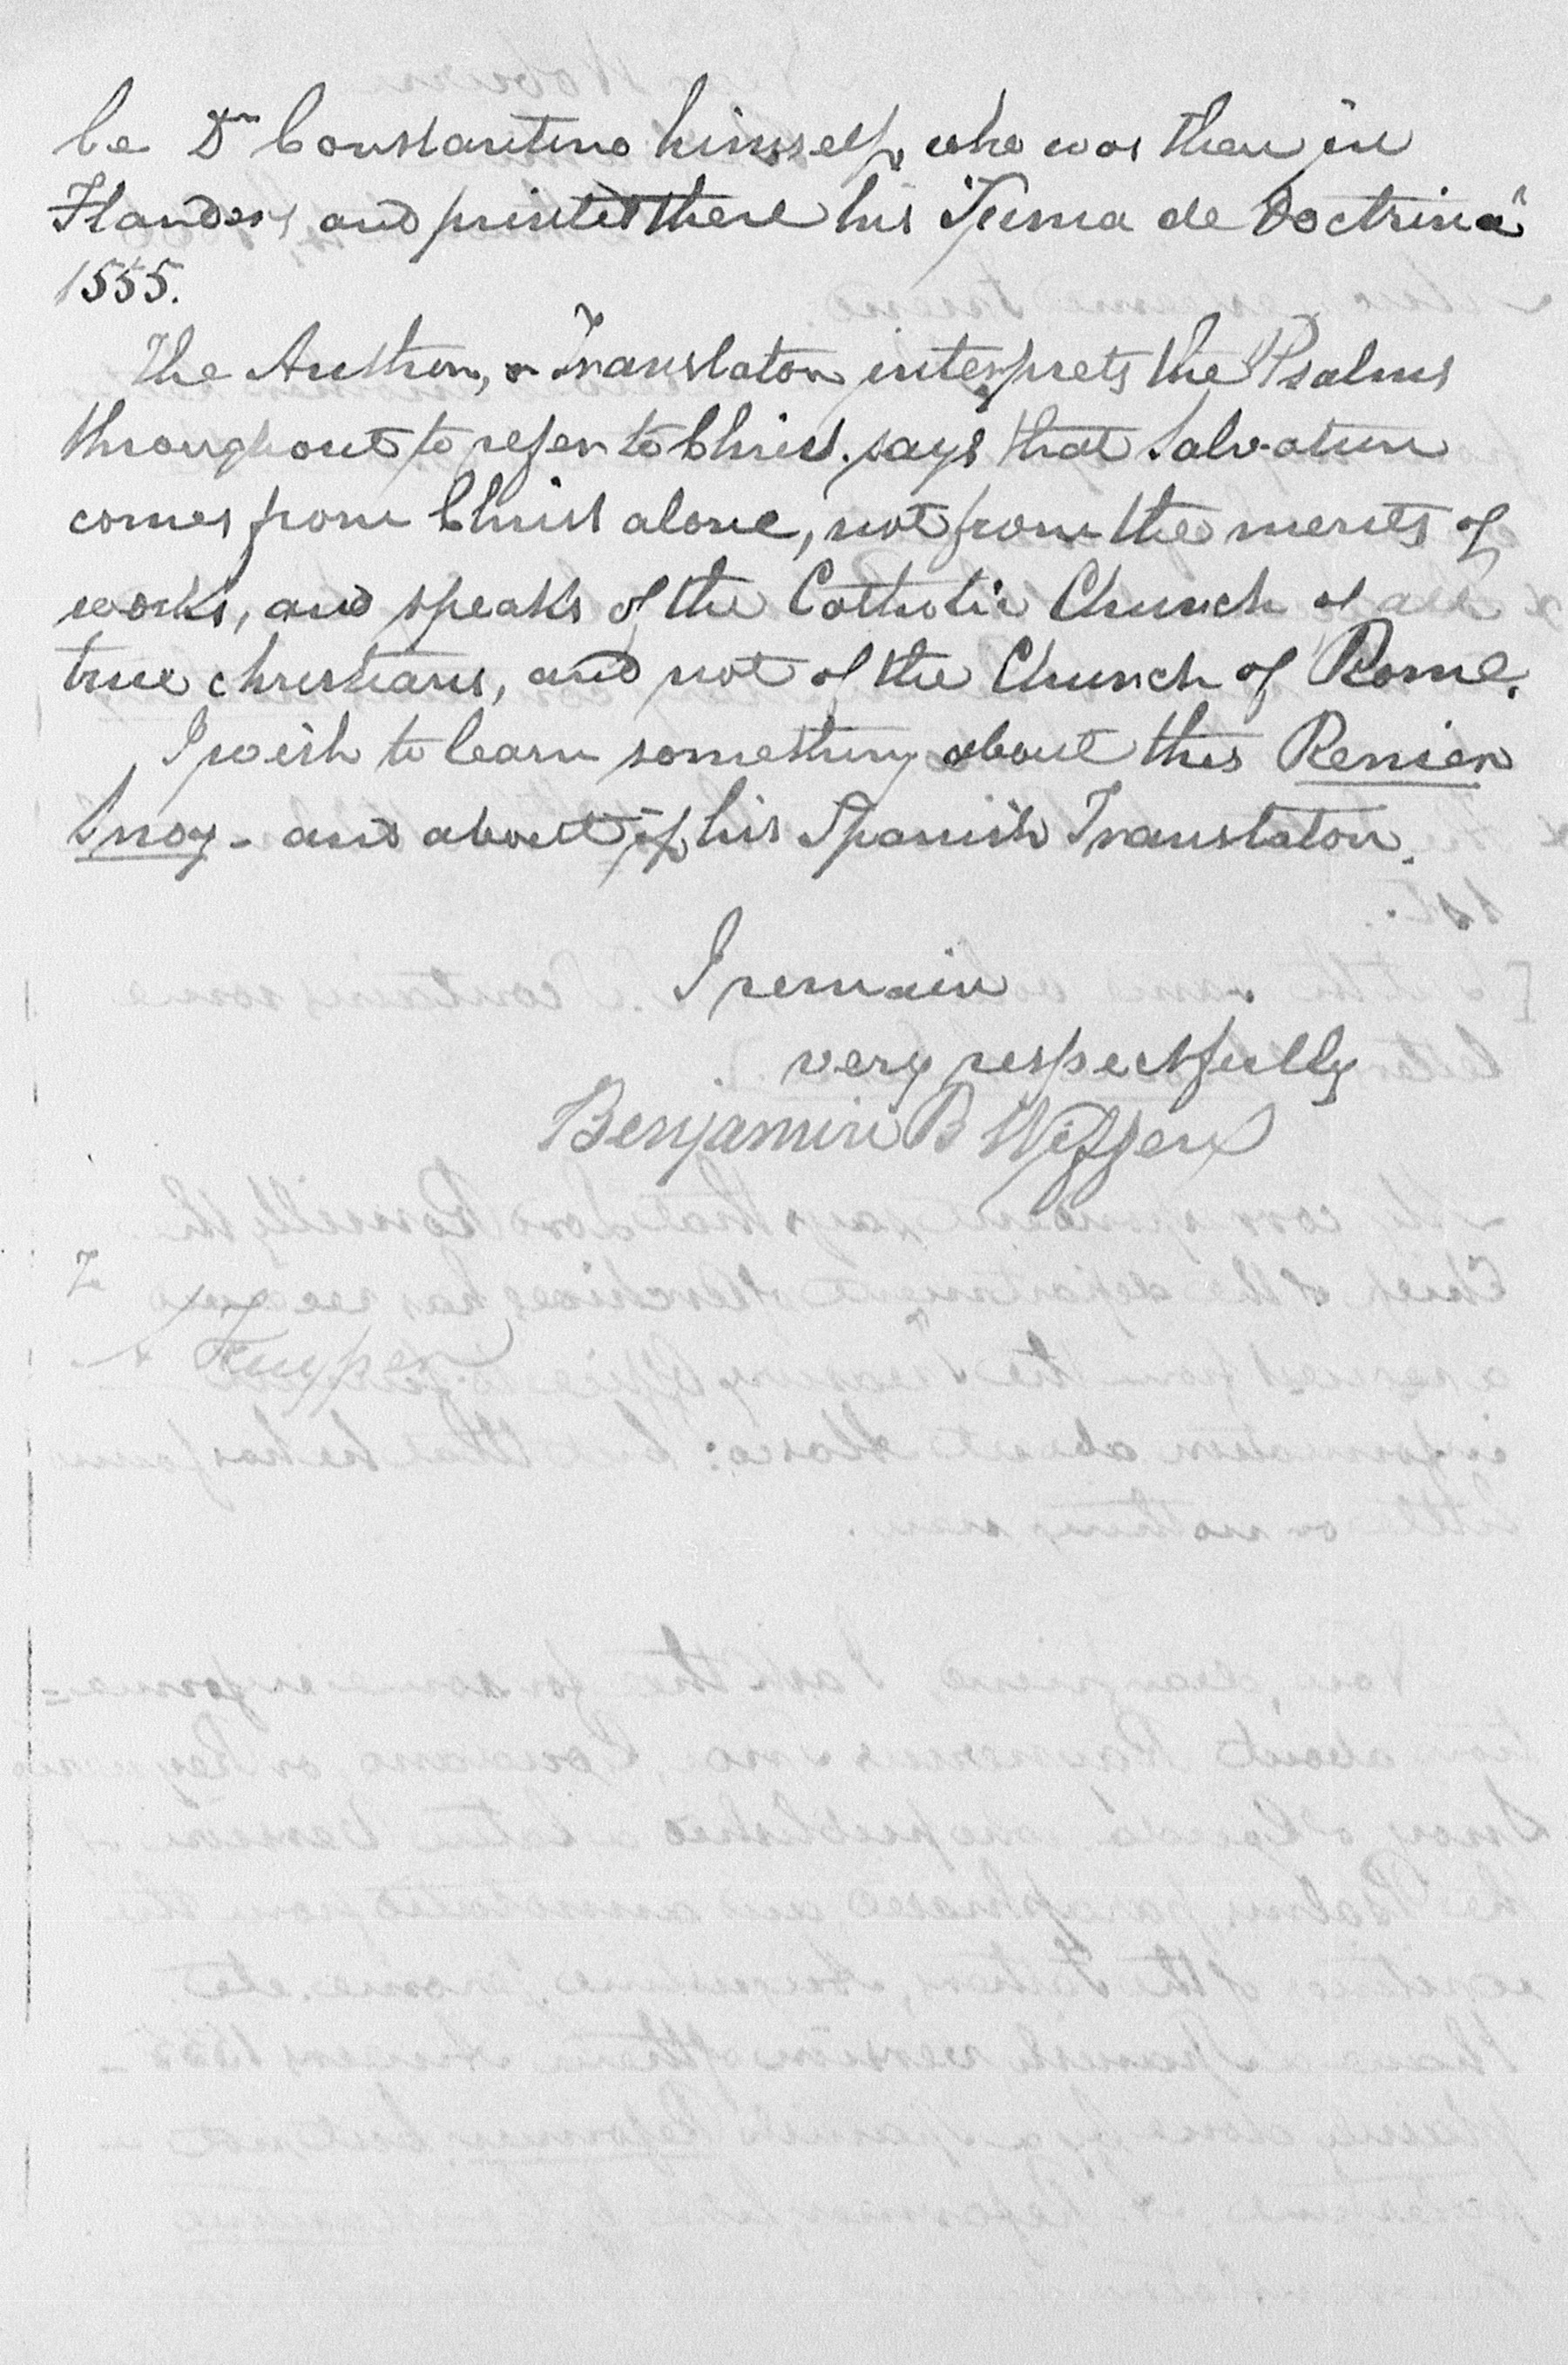 be Dr Constantino himself, who was then in
Flanders and printed there his "Suma de Doctrina"
1555.
The Author, or Translator interprets the Psalms
throughout to refer to Christ. says that Salvation
comes from Christ alone, not from the merits of
works, and speaks of the Catholic Church of all
true christians, and not of the Church of Rome.
I wish to learn something about this Renier
Snoy - and about if his Spanish Translator.
I remain
very respectfully
Benjamin B Wiffen